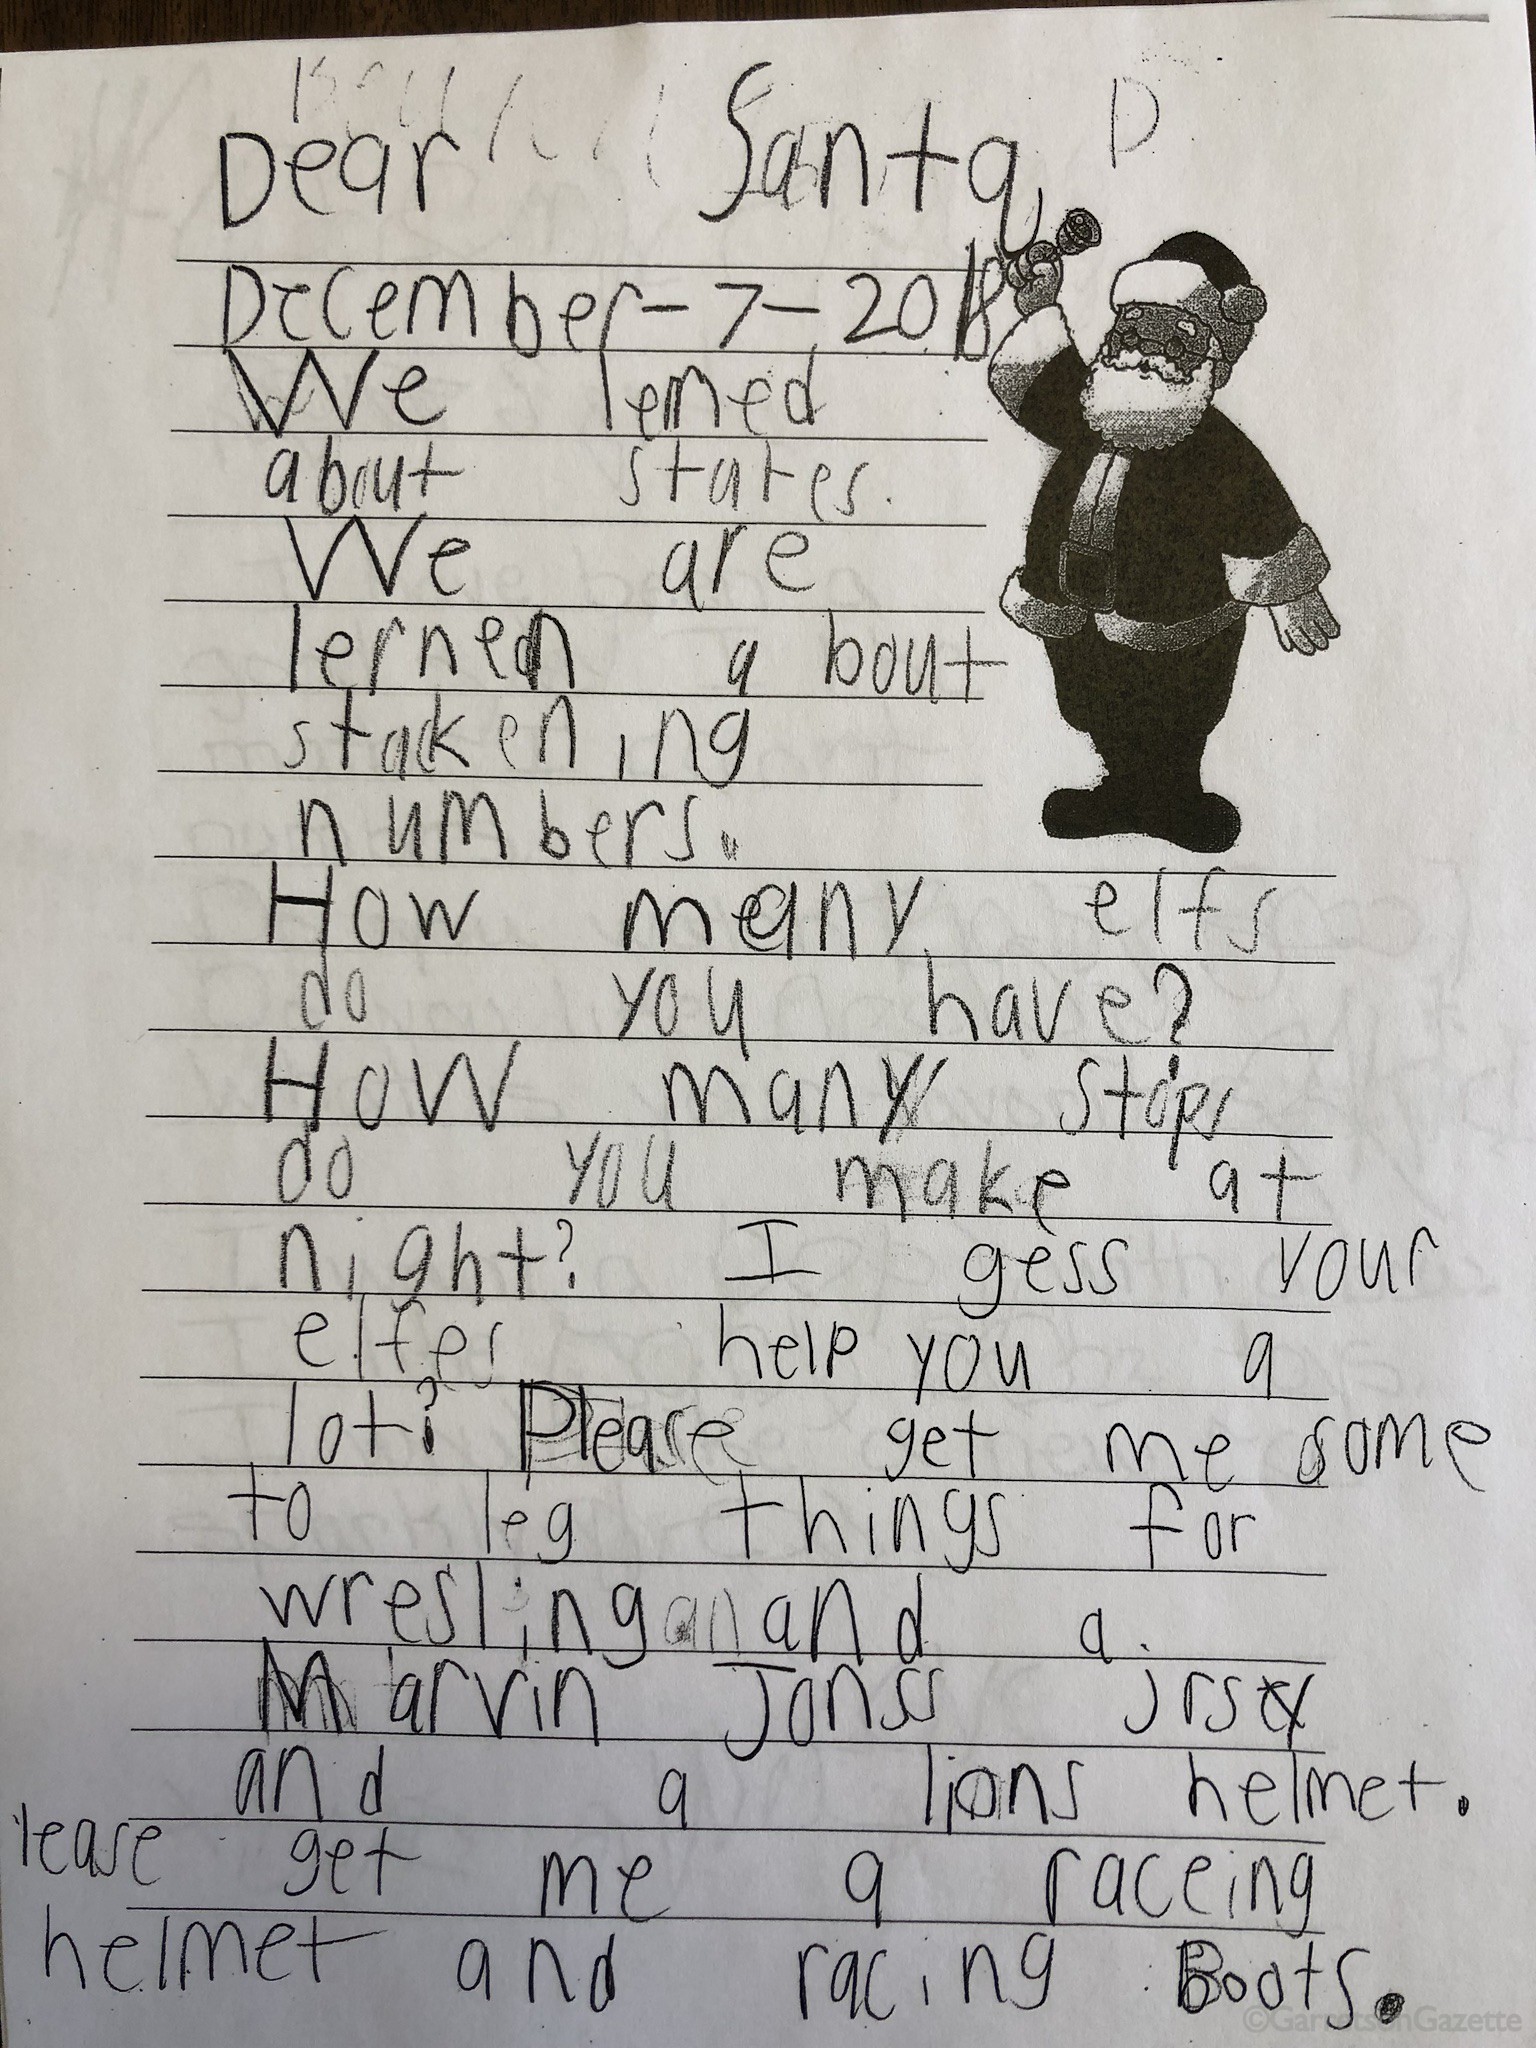 Dear Santa,
D
December-7-2018
We lerned
about states.
We are
lernen a bout
stakening
numbers.
How many elfs
do you have?
How many stops
do you make at
night? I gess your
elfes help you a
lot? Please get me some
to leg things for
wresling and a
Marvin Jonss jrsey
and a lions helmet.
lease get me a raceing
helmet and racing Boots.
©GarretsonGazette